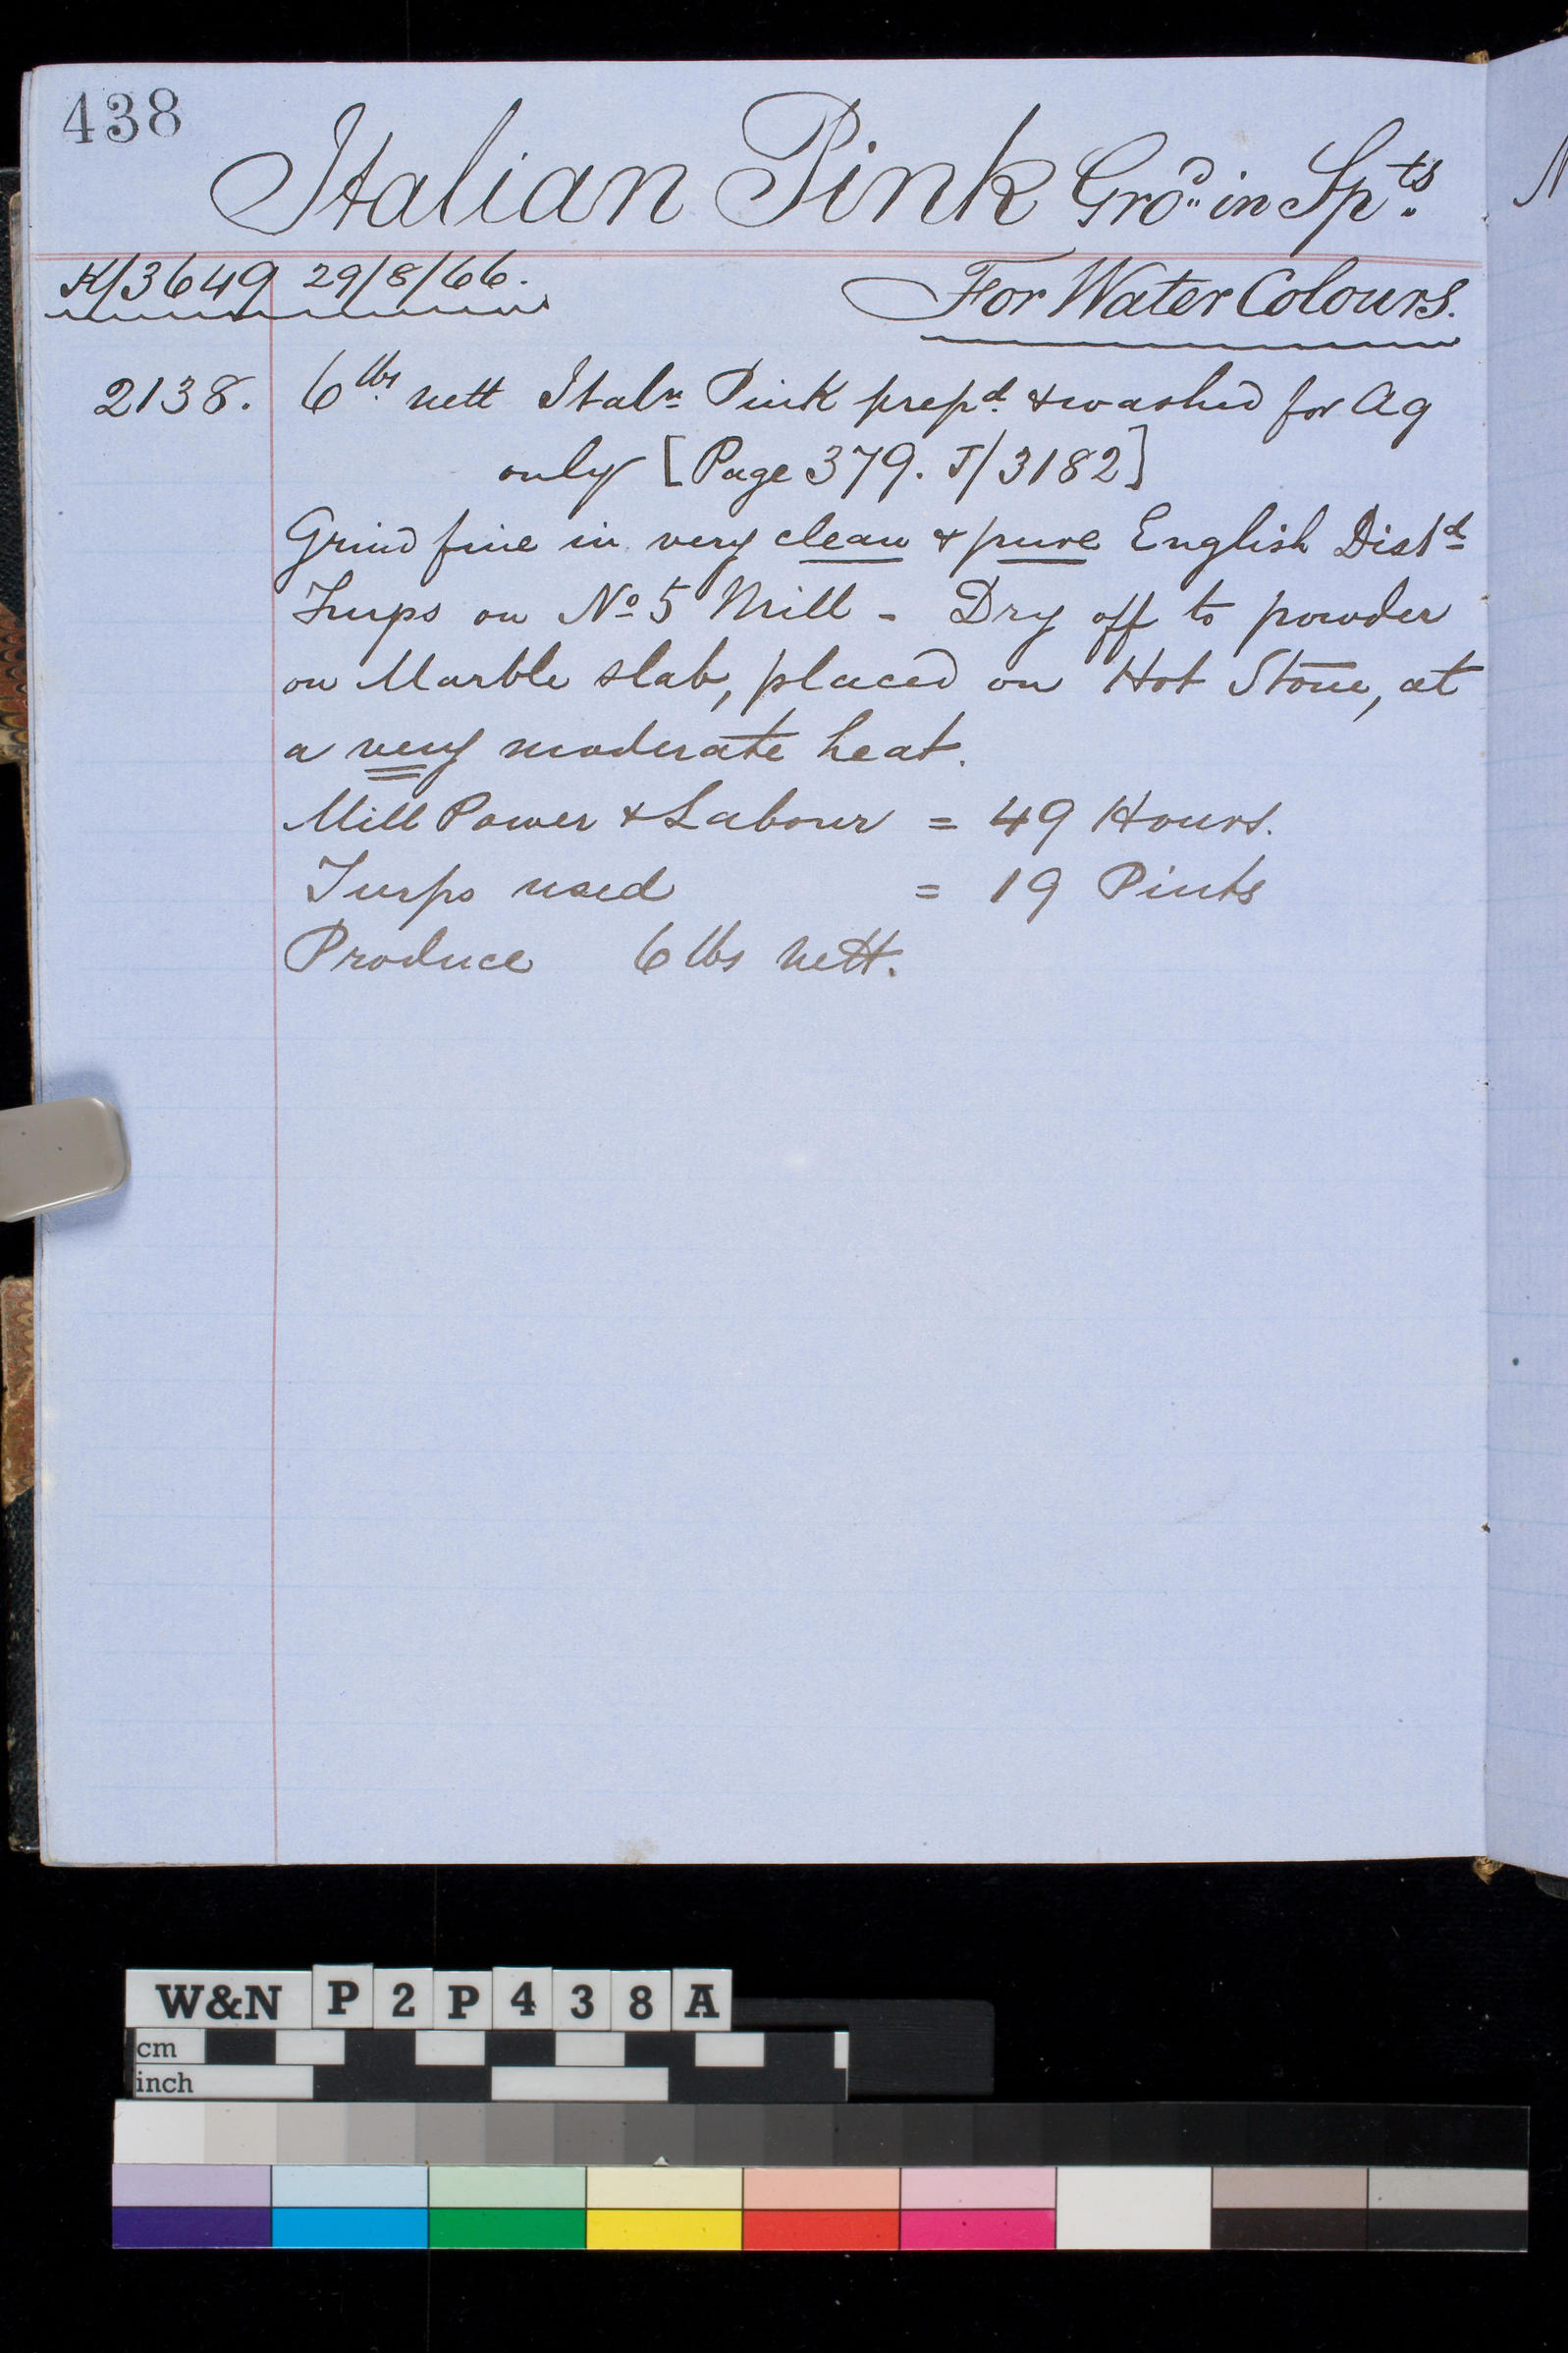 438
Italian Pink Gro.d in Sp.ts
K/3649 29/8/66.
For Water Colours.
2138. 6 lbs nett Italn Pink prepd. & washed for Aq
only [Page 379. J/3182]
Grind fine in very clean & pure English Distd
Turps on No 5 Mill - Dry off to powder
on Marble slab, placed on Hot Stone, at
a very moderate heat.
Mill Power & Labour = 49 Hours.
Turps used = 19 Pints
Produce 6 lbs nett.
W&N P2P438A
cm
inch